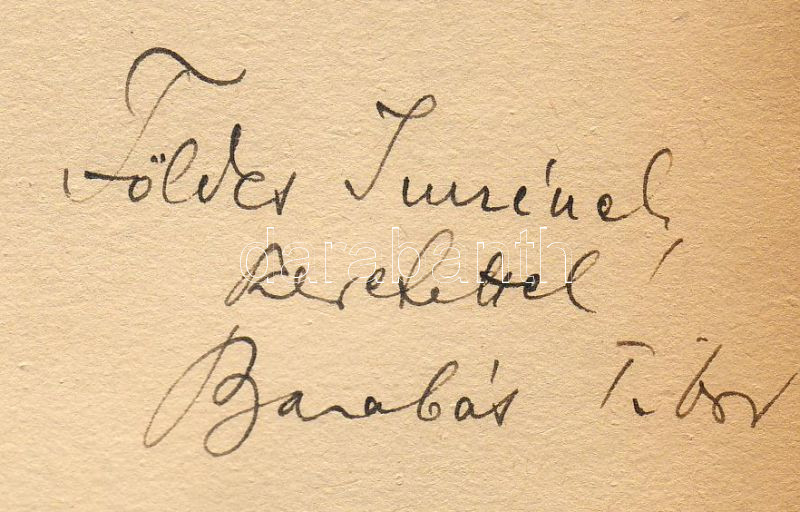 Földes Imrének,
szeretettel
Barabás Tibor
darabanth